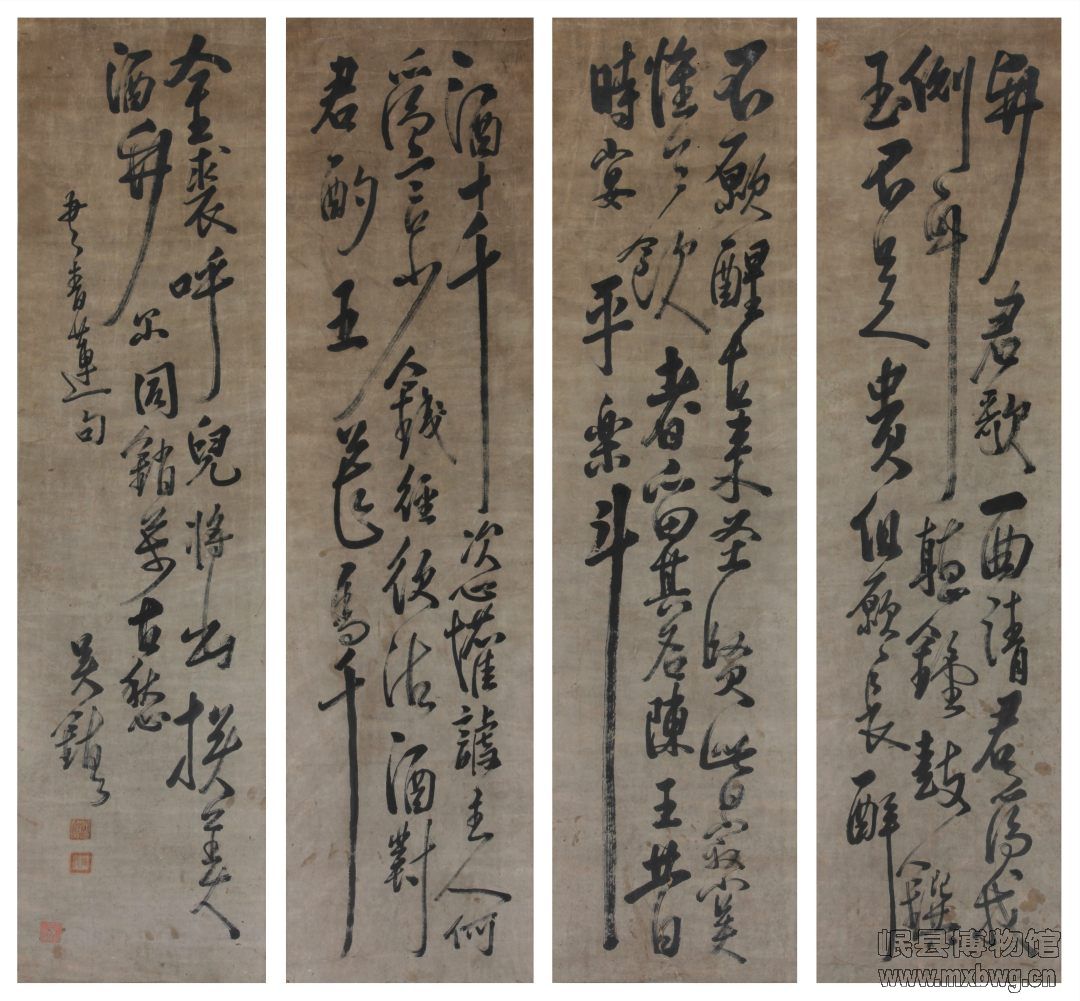 與君歌一曲請君為我
側耳聽鐘鼓饌
玉不足貴但願長醉
不願醒古来聖賢皆寂寞
惟有飲者留其名陳王昔日
時宴平樂斗
酒十千恣懽謔主人何
為言少錢徑須沽酒對
君酌五花馬千
金裘呼兒將出換美
酒與尔同銷萬古愁
青蓮句
吳鎮
岷县博物馆
www.mxbwg.cn